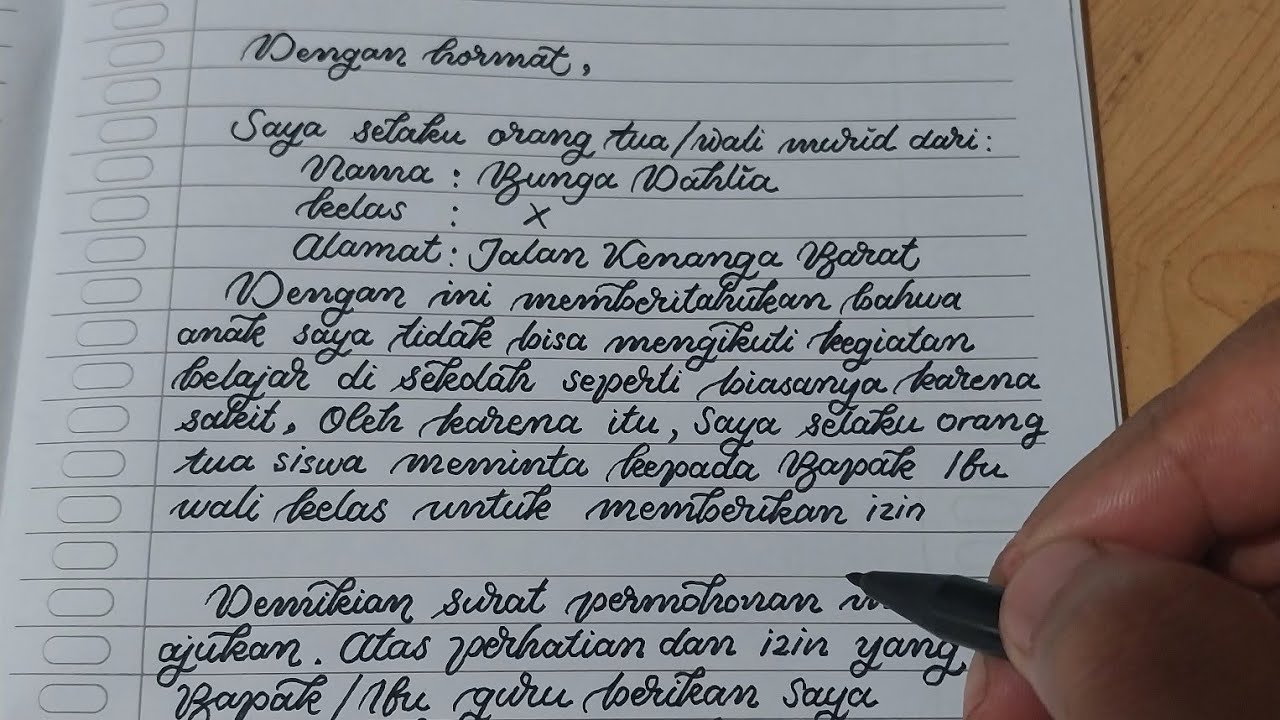 Dengan hormat,
Saya selaku orang tua/wali murid dari:
Nama : Bunga Dahlia
kelas : X
Alamat: Jalan Kenanga Barat
Dengan ini memberitahukan bahwa
anak saya tidak bisa mengikuti kegiatan
belajar di sekolah seperti biasanya karena
sakit. Oleh karena itu, Saya selaku orang
tua siswa meminta kepada Bapak Ibu
wali kelas untuk memberikan izin
Demikian surat permohonan
ajukan. Atas perhatian dan izin yang
Bapak/Ibu guru berikan saya